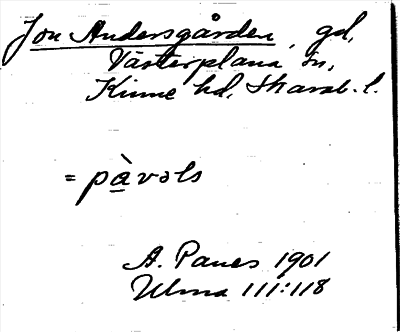 Jon Andersgården, gd,
Västerplana sn,
Kinne hd, Skarab. l.
= pàvəls
A. Panes 1901
Ulma 111:118